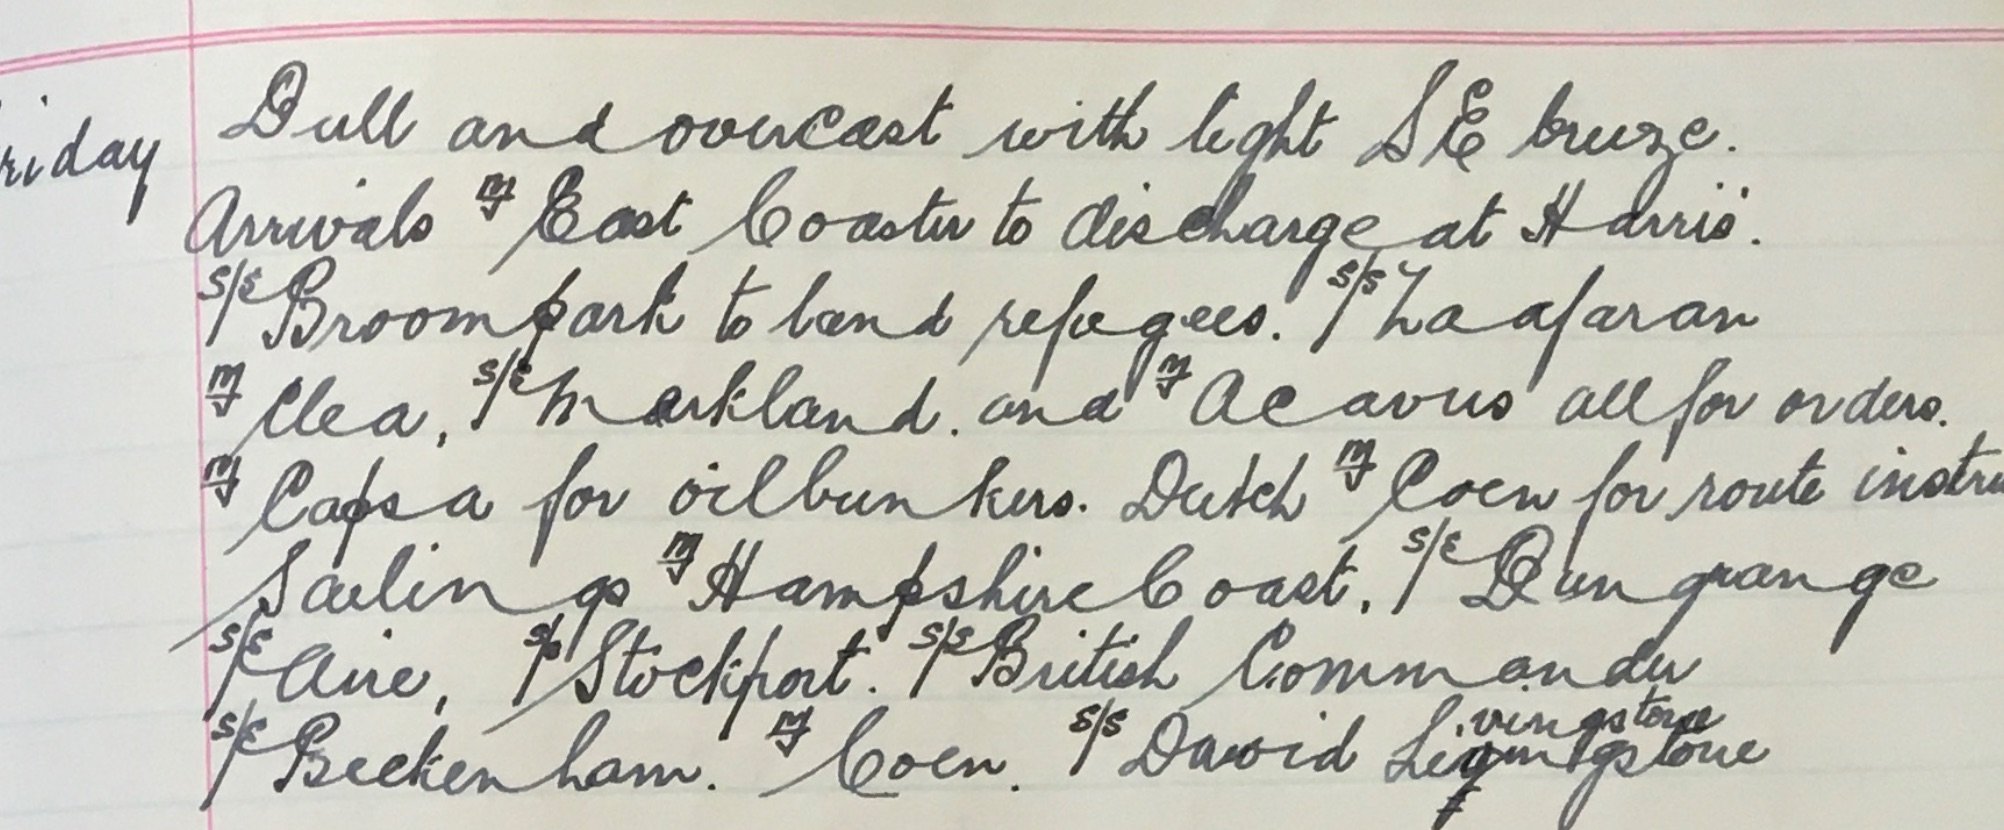 riday Dull and overcast with light SE breeze.
Arrivals M/V East Coaster to discharge at Harris'.
S/S Broompark to land refugees. S/S Zaafaran
M/V Clea, S/S Markland. and M/V Acavus all for orders.
M/V Capsa for oilbunkers. Dutch M/V Coen for route instru
Sailings M/V Hampshire Coast, S/S Dungrange
S/S Aire, S/S Stockport. S/S British Commander
vingstone
S/S Beckenham. M/V Coen. S/S David Li